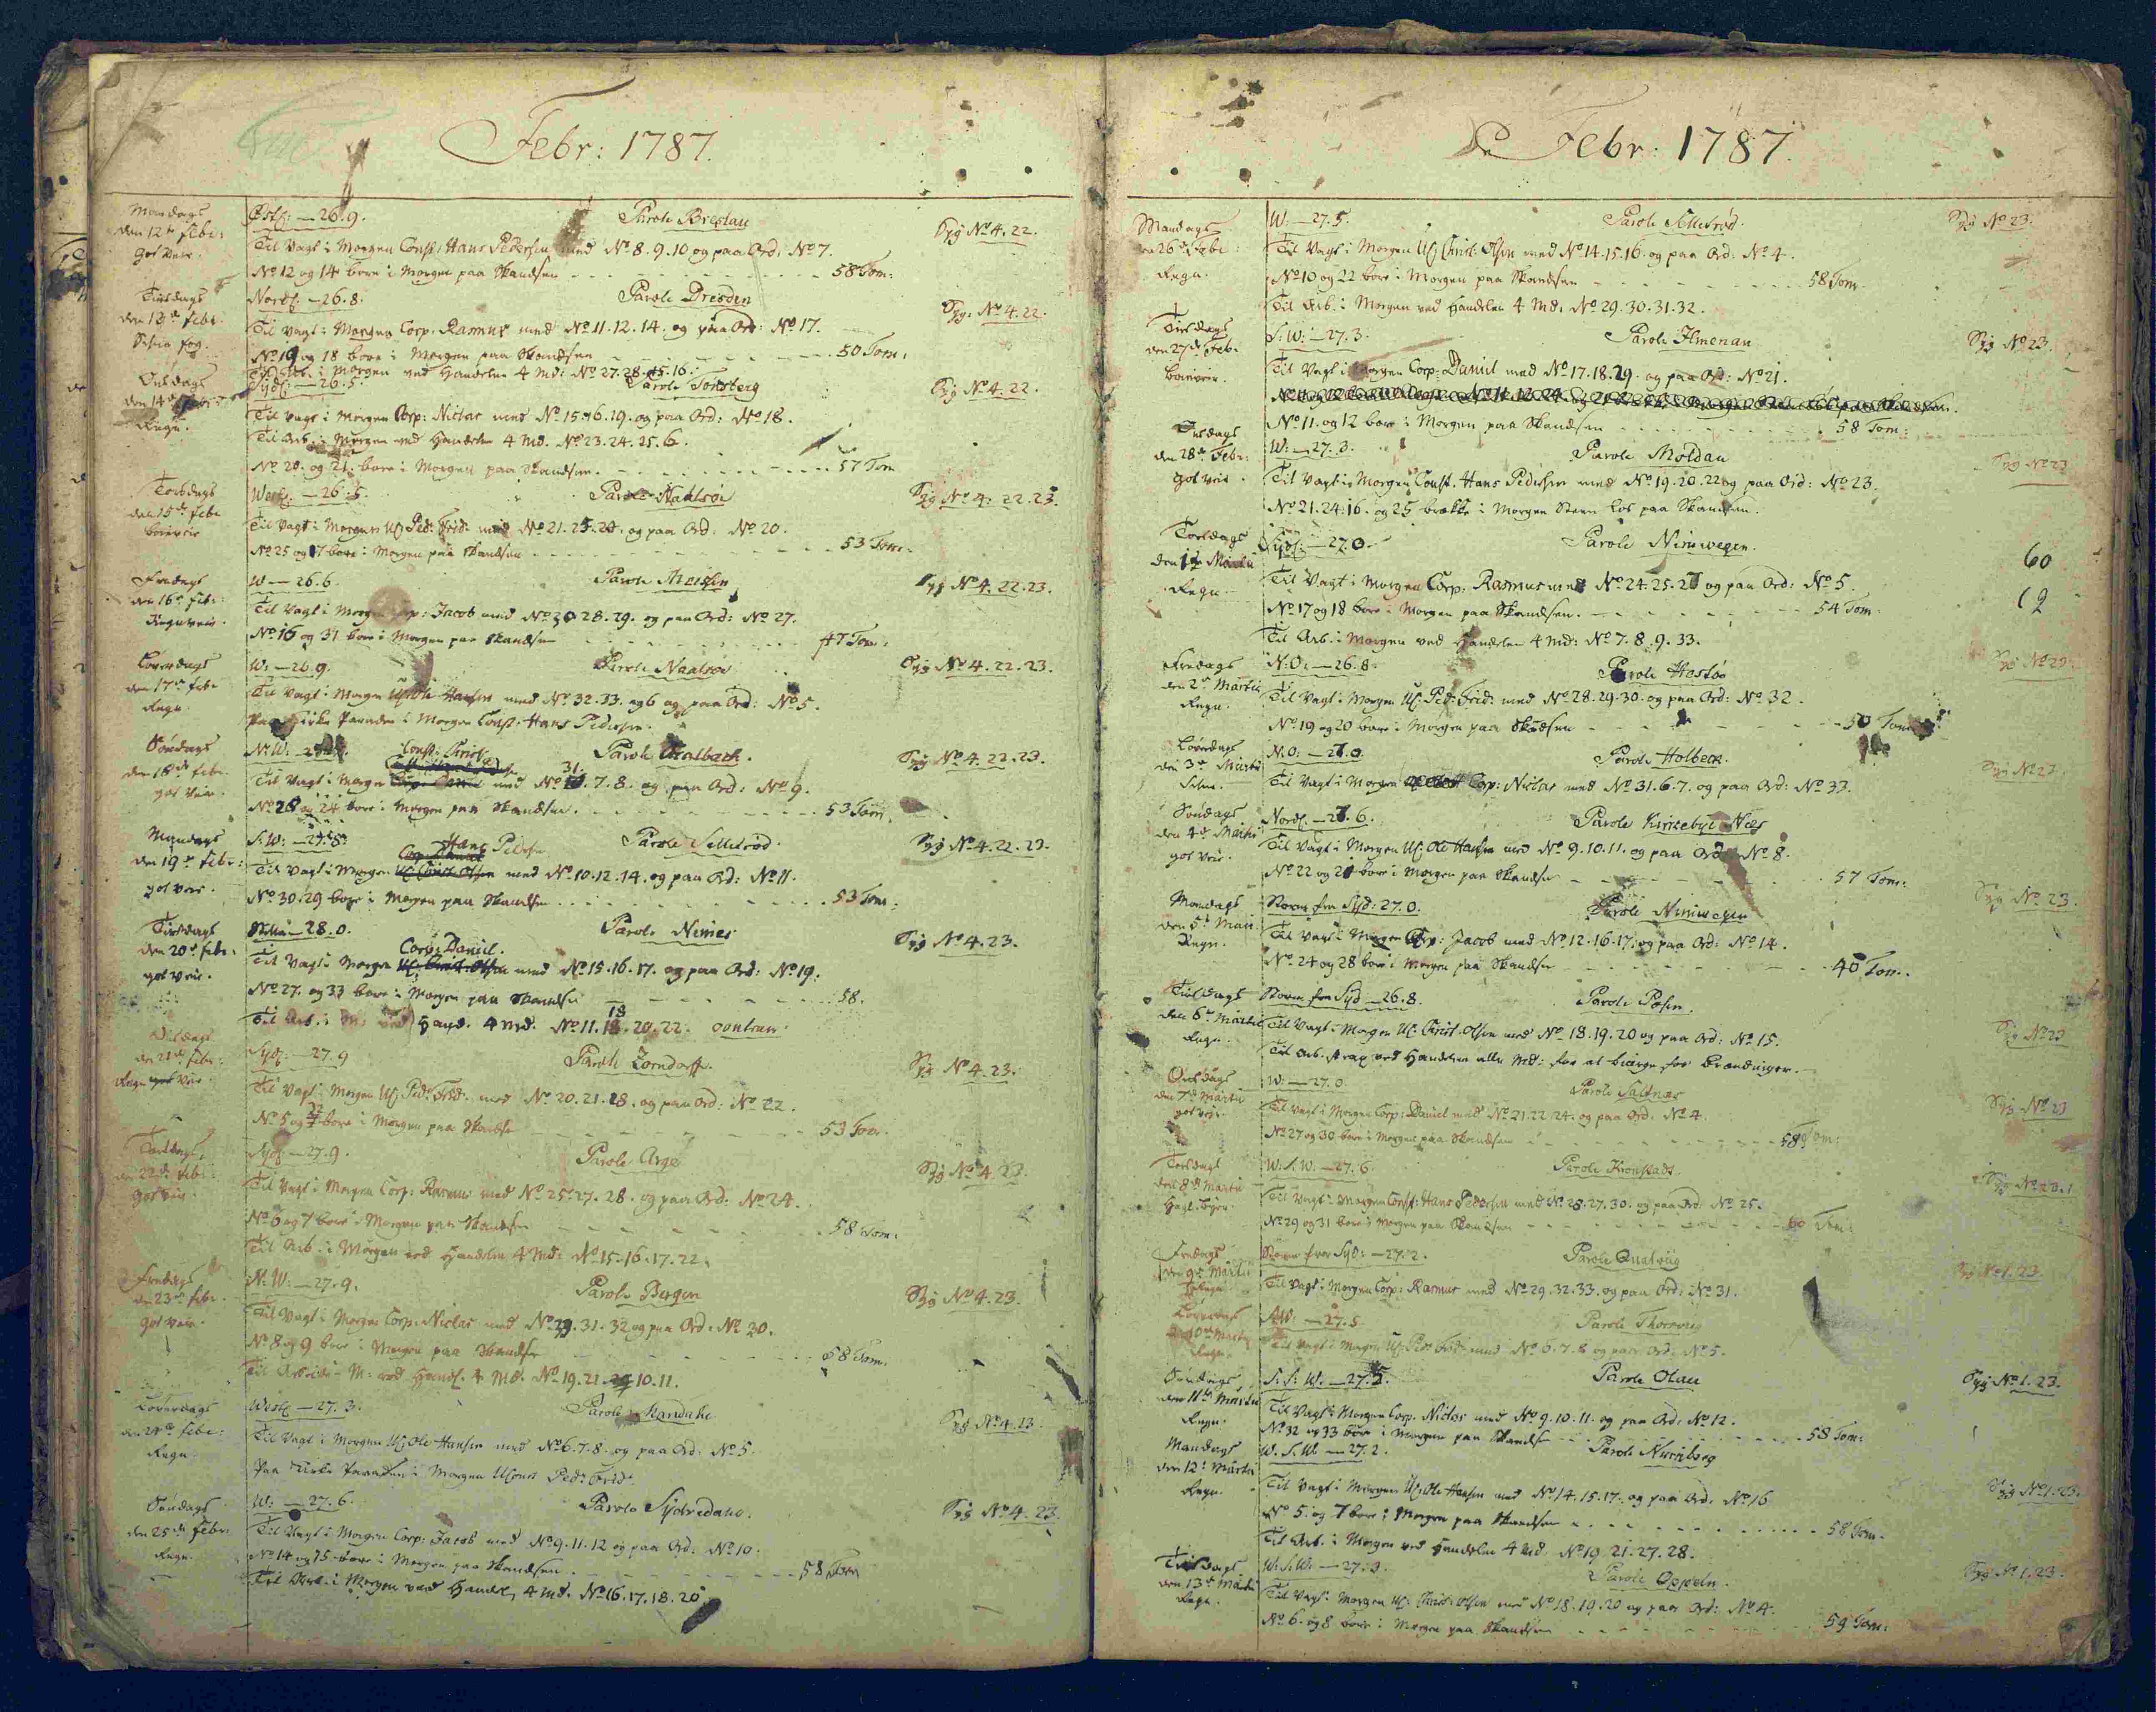 Febr: 1787.
Mandags den 12te Febr: got Veir.
Østl: — 26.9. Parole Breslau Syg No 4. 22.
Til Vagt i Morgen Const: Hans Pedersen med No 8. 9. 10 og paa Ord: No 7.
No 12 og 14 bore i Morgen paa Skandsen 58 Tom:
Tirsdags den 13de Febr.
Nordl. — 26.8. Parole Dresden Syg: No 4. 22.
Til Vagt i Morgen Corp: Rasmus med No 11. 12. 14. og paa Ord: No 17.
og 18 bore i Morgen paa Skandsen 50 Tom:
Til Arb. i Morgen ved Handelen 4 Md: No 27. 28. 15. 16.
Onsdags den 14de Regn.
Sydl: — 26.5. Parole Tonsberg Syg No 4. 22.
Til Vagt i Morgen Corp: Niclas med No 15. 16. 19. og paa Ord: No 18.
Til Arb. i Morgen ved Handelen 4 Md. No 23. 24. 25. 6.
No 20. og 21. bore i Morgen paa Skandsen. 57 Tom
Torsdags den 15de Febr
Westl: — 26.5. Parole Naalsøe Syg No 4. 22. 23.
Til Vagt i Morgen U: Ped: Frid: med No 21. 25. 24. og paa Ord. No 20.
No 25 og 17 bore i Morgen paa Skandsen 53 Tom:
Fredags den 16de Febr: Regnveir.
W — 26.6. Parole Meissen Syg No 4. 22. 23.
Til Vagt i Morgen Corp: Jacob med No 30 28. 29. og paa Ord: No 27.
No 16 og 31 bore i Morgen paa Skandsen 47 Tom:
Løverdags den 17de Febr Regn.
W: — 26.9. Parole Naalsøe Syg No 4. 22. 23.
Til Vagt i Morgen U: Ole Hansen med No 32. 33. og 6 og paa Ord: No 5.
Paa Kirke Paraden i Morgen Const: Hans Pedersen.
Søndags den 18de Febr. got Veir.
N: W. Const. Christ Parole Syg No 4. 22. 23.
31.
Til Vagt i Morgen med No 7. 8. og paa Ord: No 9.
No 28 og 24 bore i Morgen paa Skandsen. 53 Tom.
Mandags den 19de Febr: got Veir.
S: W: — 27.5. Hans Peders Parole Selletrød. Syg No 4. 22. 23.
Corp: Daniel
Til Vagt i Morgen U: Christ Olsen med No 10. 12. 14. og paa Ord: No 11.
No 30. 29 bore i Morgen paa Skandsen 53 Tom:
Tirsdags den 20de Febr: got Veir.
Stille — 28.0. Parole Nimes Syg No 4. 23.
Corp: Daniel.
Til Vagt i Morgen U: Christ. Olsen med No 15. 16. 17. og paa Ord: No 19.
No 27. og 33 bore i Morgen paa Skandsen 58.
18
Til Arb. i M: ved Hand. 4 Md. No 11. 18. 20. 22. contram.
Onsdags den 21de Febr: Regn got Veir.
Sydl: — 27.9 Parole Zorndorff. Syg No 4. 23.
Til Vagt i Morgen U: Ped: Frid: med No 20. 21. 28. og paa Ord: No 22.
32
No 5 og bore i Morgen paa Skandsen 53 Tom.
Torsdags den 22de Feb: got Veir.
Sydl — 27.9. Parole Arge Syg No 4. 23.
Til Vagt i Morgen Corp: Rasmus med No 25. 27. 28. og paa Ord: No 24.
No 6 og 7 bore i Morgen paa Skandsen 58 Tom:
Til Arb. i Morgen ved Handelen 4 Md: No 15. 16. 17. 22.
Fredags den 23de Febr. got Veir.
N: W: — 27.9. Parole Bergen Syg No 4. 23.
Til Vagt i Morgen Corp: Niclas med No 29. 31. 32 og paa Ord: No 30.
No 8 og 9 bore i Morgen paa Skandsen 58 Tom.
Til Arbeide i M: ved Handl. 4 Md. No 19. 21. 10. 11.
Løverdags den 24de Febr: Regn.
Westl — 27.3. Parole Mandahl Syg No 4. 23.
Til Vagt i Morgen U: Ole Hansen med No 6. 7. 8. og paa Ord: No 5.
Paa Kirke Paraden i Morgen Ped: Frid:
Søndags den 25de Febr. Regn.
W: — 27.6. Parole Syderdahl. Syg No 4. 23.
Til Vagt i Morgen Corp: Jacob med No 9. 11. 12 og paa Ord. No 10.
No 14 og 15 bore i Morgen paa Skandsen. 58 Tom
Til Arb. i Morgen ved Handl, 4 Md. No 16. 17. 18. 20.
Febr: 1787.
Mandags den 26de Febr: Regn.
W — 27.5. Parole Selletrød. Syg No 23.
Til Vagt i Morgen U: Christ. Olsen med No 14. 15. 16. og paa Ord: No 4.
No 10 og 22 bore i Morgen paa Skandsen 58 Tom
Til Arb. i Morgen ved Handelen 4 Md. No 29. 30. 31. 32.
Tirsdags den 27de Feb.
S: W: — 27.3. Parole Ilmenau Syg No 23.
Til Vagt i Morgen Corp: Daniel med No 17. 18. 29. og paa Ord: No 21.
No 11. og 12 bore i Morgen paa Skandsen 58 Tom:
Onsdags den 28de Febr: got Veir.
W: — 27.3. Parole Moldau Syg No 23
Til Vagt i Morgen Const. Hans Pedersen med No 19. 20. 22 og paa Ord: No 23.
No 21. 24. 16. og 25 brække i Morgen Steen los paa Skandsen.
Torsdags den 1te Martii Regn
Sydl: — 27.0. Parole Nimwegen. 60
Til Vagt i Morgen Corp. Rasmus med No 24. 25. 27 og paa Ord: No 5.
No 17 og 18 bore i Morgen paa Skandsen. 54 Tom:
Til Arb. i Morgen ved Handelen 4 Md: No 7. 8. 9. 33.
Fredags den 2de Martii Regn.
N: O: — 26.8. Parole Hestøe Syg No 23.
Til Vagt i Morgen U: Ped: Frid: med No 28. 29. 30. og paa Ord: No 32.
No 19 og 20 bore i Morgen paa Skandsen 50 Tom
Løverdags den 3de Martii
N: O: — 27.0. Parole Holbeck. Syg No 23.
Til Vagt i Morgen Corp: Niclas med No 31. 6. 7. og paa Ord: No 33.
Søndags den 4de Martii got Veir.
Nordl. — 27.6. Parole Kirkebye Næs
Til Vagt i Morgen U: Ole Hansen med No 9. 10. 11. og paa Ord: No 8.
No 22 og 21 bore i Morgen paa Skandsen 57 Tom:
Mandags den 5te Marti Regn.
Storm fra Syd: 27.0. Parole Nimwegen Syg No 23.
Til Vagt i Morgen Corp: Jacob med No 12. 16. 17. og paa Ord: No 14.
No 24 og 28 bore i Morgen paa Skandsen 40 Tom.
Tirsdags den 6te Martii Regn.
Storm fra Syd — 26.8. Parole Posen. Syg No 23
Til Vagt i Morgen U: Christ. Olsen med No 18. 19. 20 og paa Ord: No 15.
Til Arb. strax ved Handelen alle Md: for at biærge for Brændinger.
Onsdags den 7de Martii got Veir.
W: — 27.0 Parole Saltnæs Syg No 23
Til Vagt i Morgen Corp: Daniel med No 21. 22. 24. og paa Ord: No 4.
No 27 og 30 bore i Morgen paa Skandsen 58 Tom:
Torsdags den 8de Martii
W. S. W. — 27.6 Parole Kronstadt Syg No 23. 1
Til Vagt i Morgen Const: Hans Pedersen med No 28. 27. 30. og paa Ord: No 25.
No 29 og 31 bore i Morgen paa Skandsen 60 Tom:
Fredags den 9de Martii
Storm fra Syd: — 27.2. Parole Syg No 1. 23.
Til Vagt i Morgen Corp: Rasmus med No 29. 32. 33. og paa Ord: No 31.
Løverdags den 10de Martii Regn.
— 27.5 Parole
Til Vagt i Morgen U: Ped: Frid: med No 6. 7. 8 og paa Ord: No 5.
Søndags den 11te Martii Regn.
S. S. W. — 27.5. Parole Olau Syg No 1. 23.
Til Vagt i Morgen Corp. Niclas med No 9. 10. 11. og paa Ord: No 12.
No 32 og 33 bore i Morgen paa Skandsen 58 Tom:
Mandags den 12te Martii Regn.
W. S. W. — 27.2. Parole Nürnberg Syg No 1. 23.
Til Vagt i Morgen U: Ole Hansen med No 14. 15. 17. og paa Ord: No 16
No 5. og 7 bore i Morgen paa Skandsen 58 Tom.
Til Arb. i Morgen ved Handelen 4 Md. No 19 21. 27. 28.
Tirsdags den 13de Martii Regn.
W. S. W: — 27.3. Parole Oppeln. Syg No 1. 23.
Til Vagt i Morgen U: Christ: Olsen med No 18. 19. 20 og paa Ord: No 4.
No 6. og 8 bore i Morgen paa Skandsen 59 Tom: